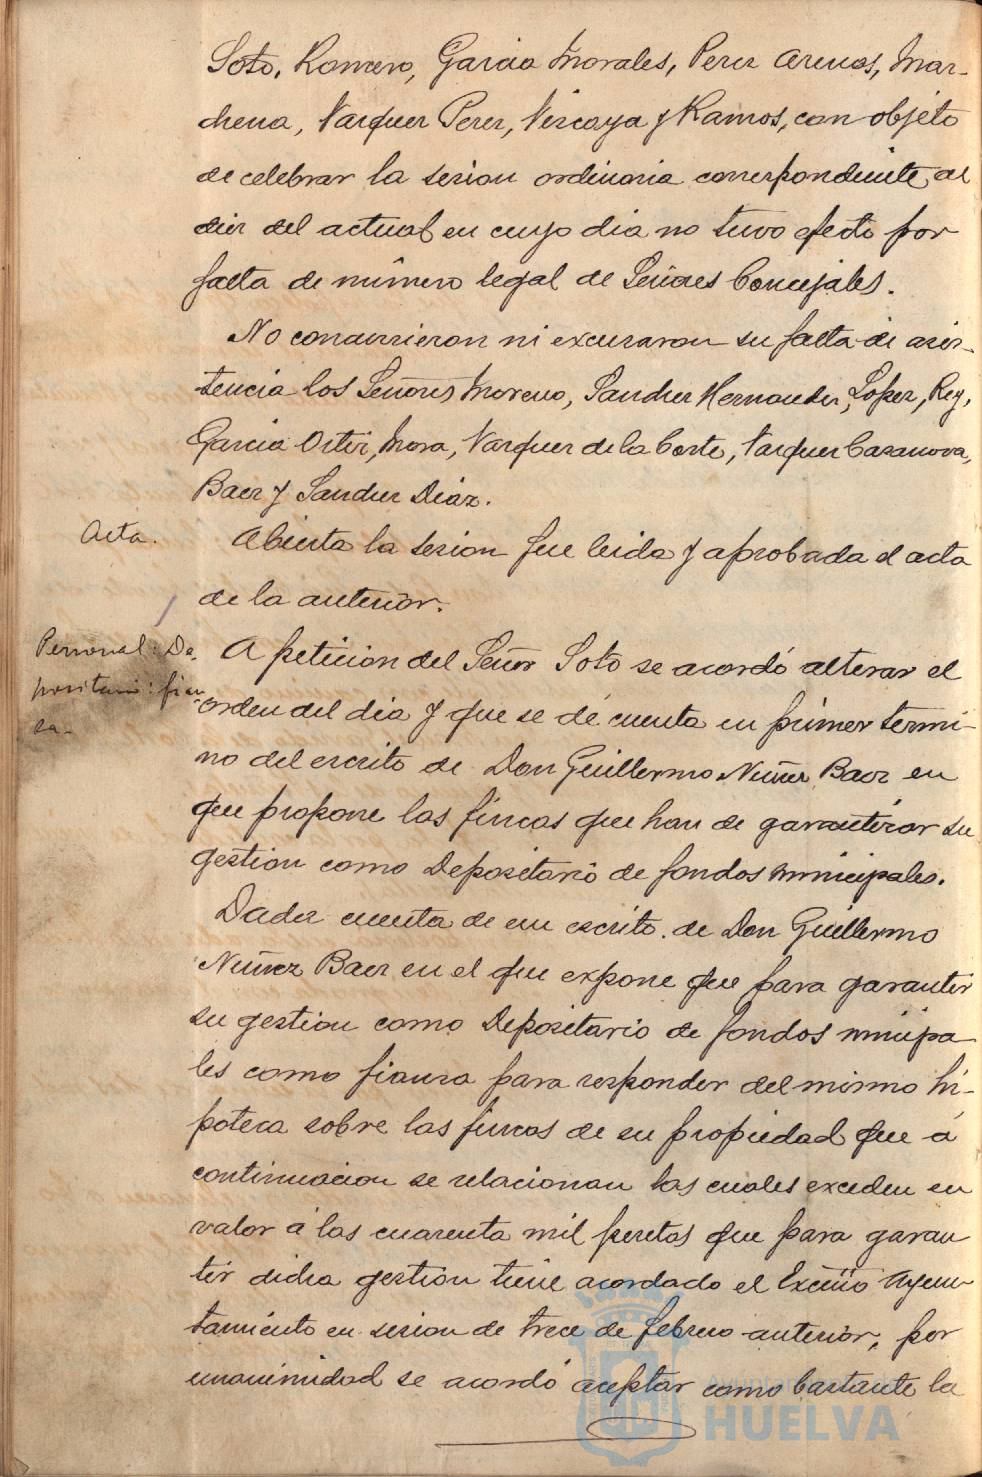 Soto, Romero, Garcia Morales, Perez Arenas, Mar-
chena, Vazquez Perez, Vizcaya y Ramos, con objeto
de celebrar la sesion ordinaria correspondiente al
diez del actual en cuyo dia no tuvo efecto por
falta de número legal de Señores Concejales.
No concurrieron ni excusaron su falta de asis-
tencia los Señores Moreno, Sanchez Hernandez, Lopez, Rey,
Garcia Ortiz, Mora, Vazquez de la Corte, Vazquez Casanova,
Baez y Sanchez Diaz.
Acta.
Abierta la sesion fue leida y aprobada el acta
de la anterior.
Personal: De-
positario: fian-
za.
A peticion del Señor Soto se acordó alterar el
orden del dia y que se dé cuenta en primer termi-
no del escrito de Don Guillermo Nuñez Baez en
que propone las fincas que han de garantizar su
gestion como Depositario de fondos municipales.
Dada cuenta de un escrito de Don Guillermo
Nuñez Baez en el que expone que para garantir
su gestion como Depositario de fondos municipa
les como fianza para responder del mismo hi-
poteca sobre las fincas de su propiedad que á
continuacion se relacionan las cuales exceden en
valor á las cuarenta mil pesetas que para garan
tir dicha gestion tiene acordado el Excmo Ayun-
tamiento en sesion de trece de febrero anterior, por
unanimidad se acordó aceptar como bastante la
Ayuntamiento de
HUELVA